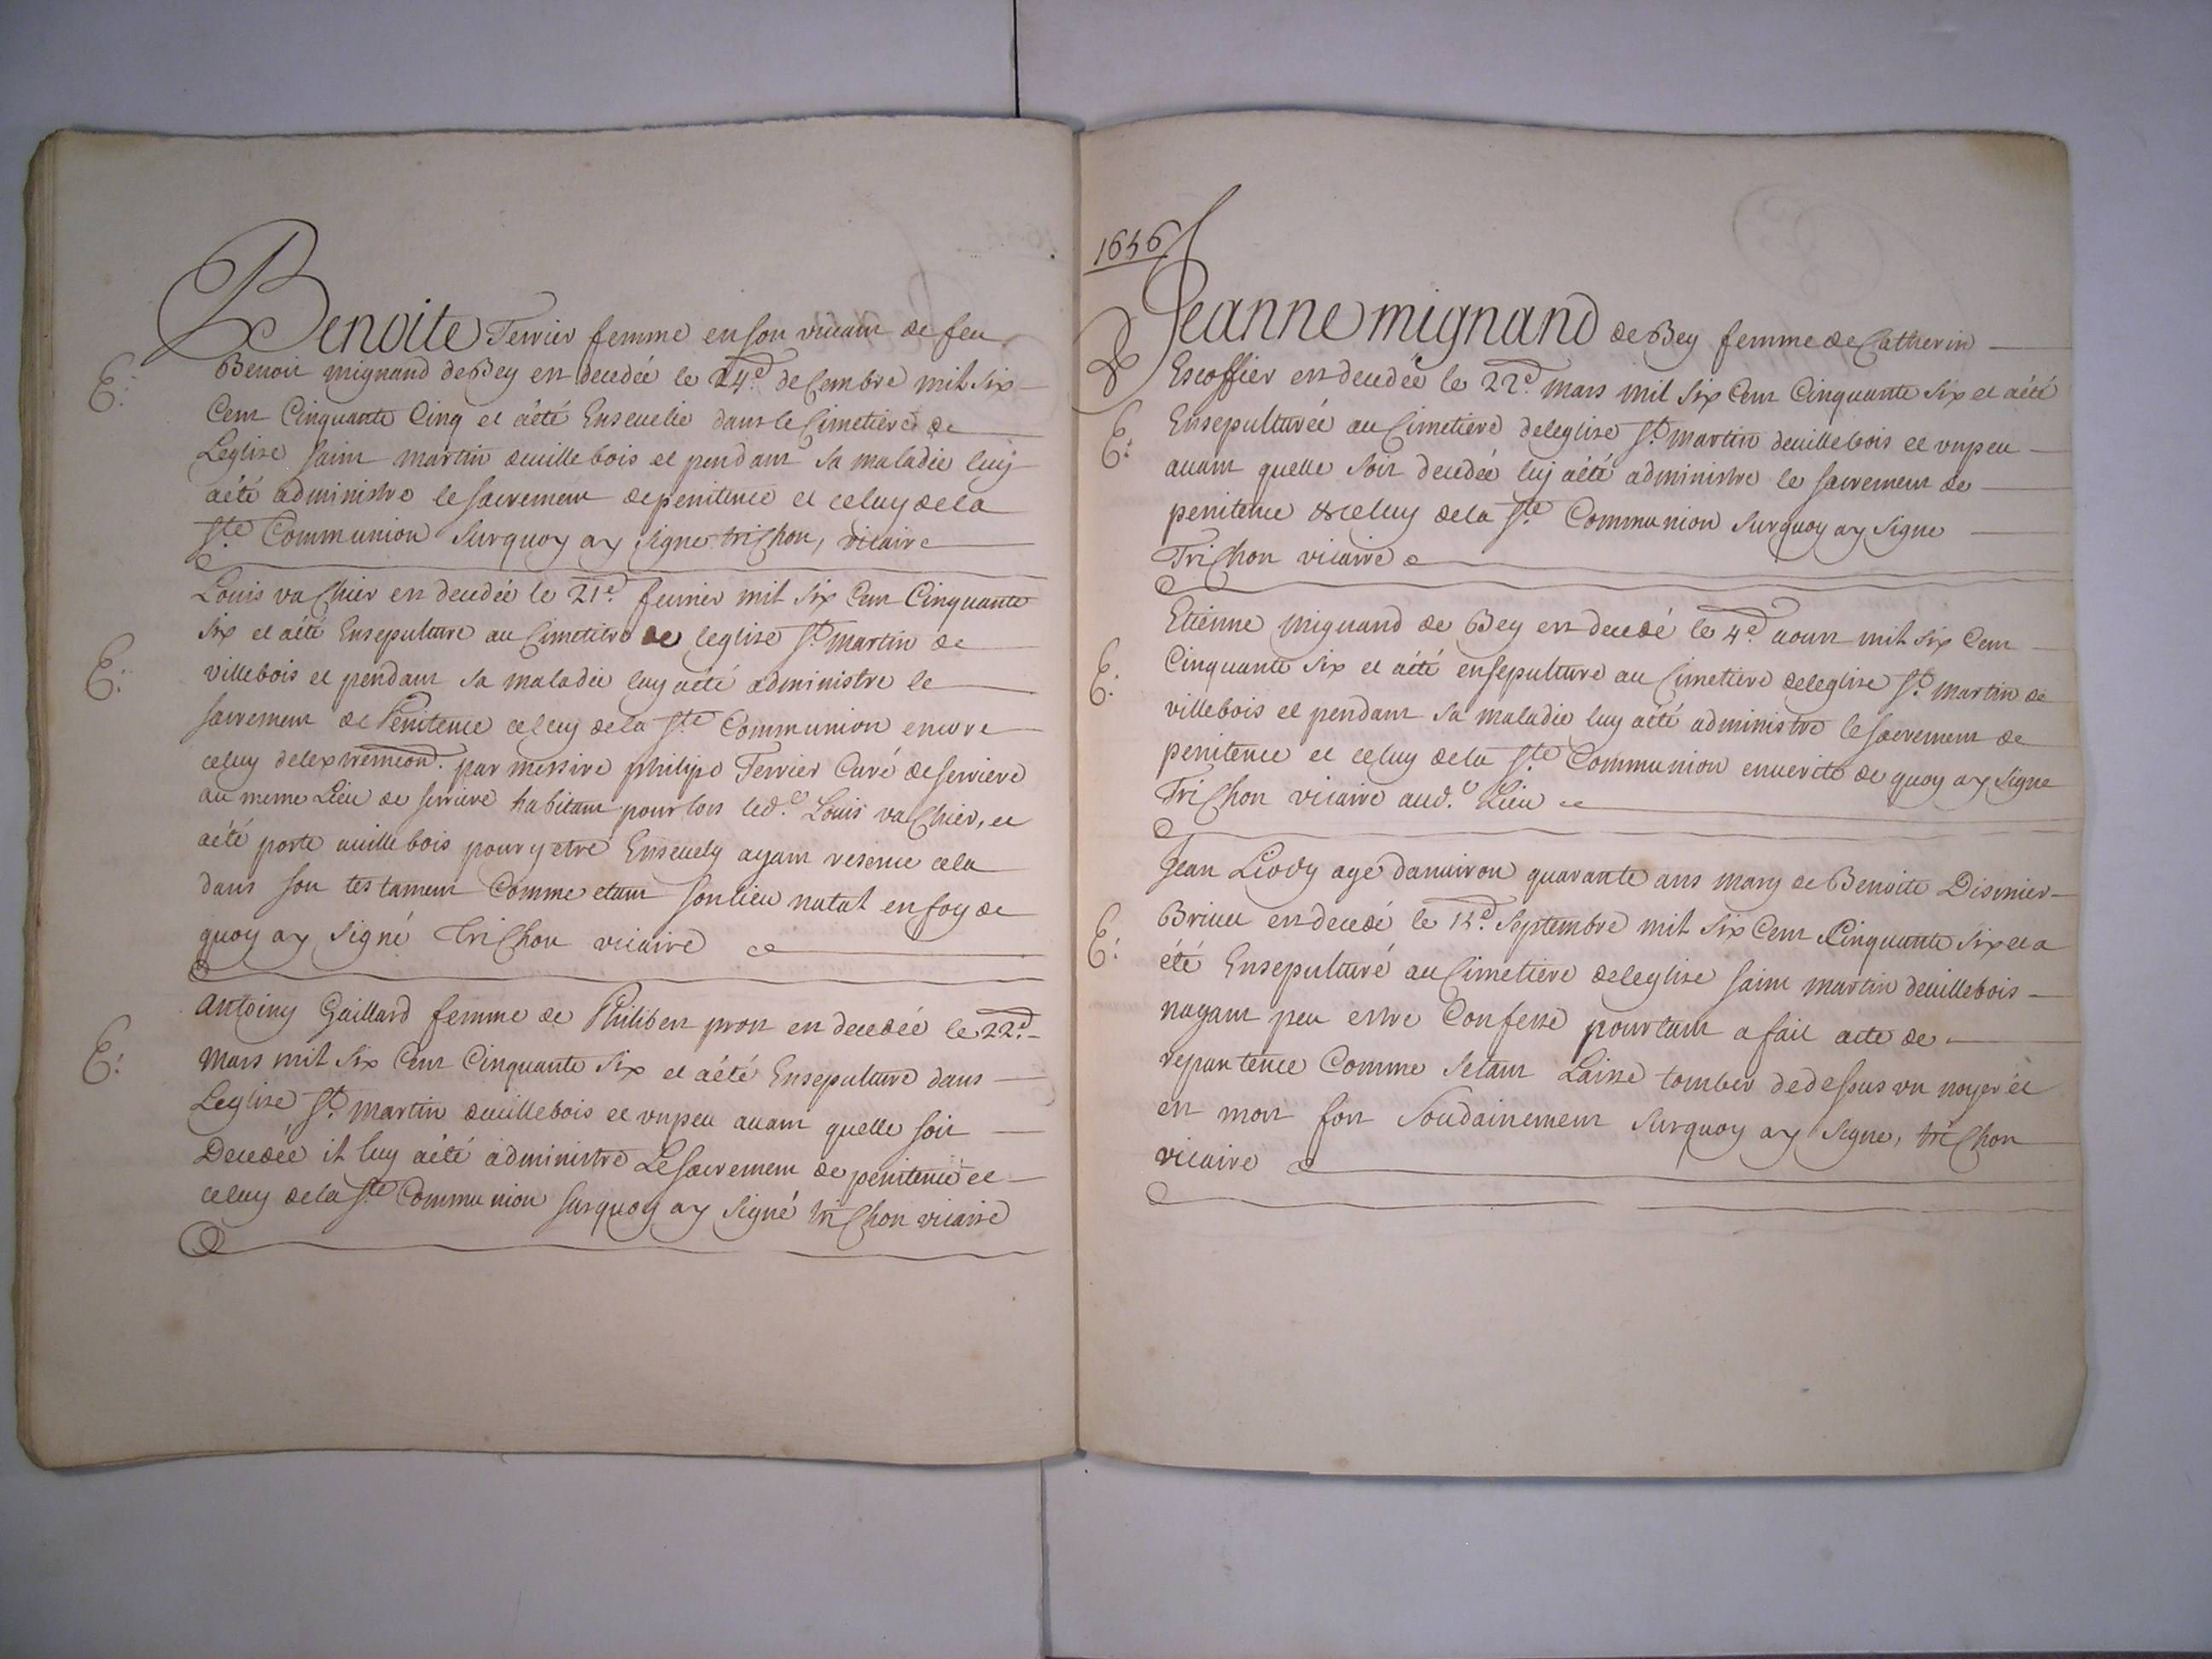 Benoite Ferrier femme en son vivant de feu
E: Benoit mignand de Bey est decedée le 24.e decembre mil six
Cent Cinquante Cinq et aété Enseuelie dans le Cimetiere de
Leglise saint martin deuillebois et pendant sa maladie luy
aété administre le sacrement de penitence et celuy dela
Ste Communion surquoy ay signe trichon, vicaire
Louis vachier est decedée le 21e. feurier mil six Cent Cinquante
six et aété Ensepulture au Cimetiere de leglise St. martin de
E: villebois et pendant sa maladie luy aété administre le
sacrement de Penitence celuy dela Ste Communion encore
celuy delextremeond. par messire philipe Ferrier Curé de serriere
au meme Lieu de serriere habitant pour lors led.e Louis vachier, et
aété porte auillebois pour y etre Enseuely ayant reserue cela
dans son testament Comme etant son lieu natal en foy de
quoy ay signé trichon vicaire
antoiny Gaillard femme de Philibert pron est decedée le 22.d
E: mars mil six Cent Cinquante six et aété Ensepulture dans
Leglise St. martin deuillebois et vnpeu auant quelle soit
Decedée it luy aété administre Le sacrement de penitence et
celuy dela Ste Communion surquoy ay signé trichon vicaire
1656
Jeanne mignand de Bey femme de Catherin
Escoffier est decedée le 22d. mars mil six Cent Cinquante six et aété
E: Ensepulturée au Cimetiere deleglise St. martin deuillebois et vnpeu
auant quelle soit decedée luy aété administre le sacrement de
penitence & celuy dela Ste Communion surquoy ay signe
Trichon vicaire
Etienne mignand de Bey est decedé le 4e. aoust mil six Cent
E: Cinquante six et aété ensepulture au Cimetiere deleglise St. martin de
villebois et pendant sa maladie luy aété administre le sacrement de
penitence et celuy dela Ste Communion enuerité de quoy ay signe
Trichon vicaire aud.t Lieu
Jean Liody agé danuiron quarante ans mary de Benoite Disinier
E: Briuet est decedé le 15.d septembre mil six Cent Cinquante six et a
été Ensepulturé au Cimetiere deleglise saint martin deuillebois
nayant peu estre Confesse pourtant a fait acte de
repantence Comme setant Laisse tomber dedessus vn noyer et
est mort fort soudainement surquoy ay signe, trichon
vicaire